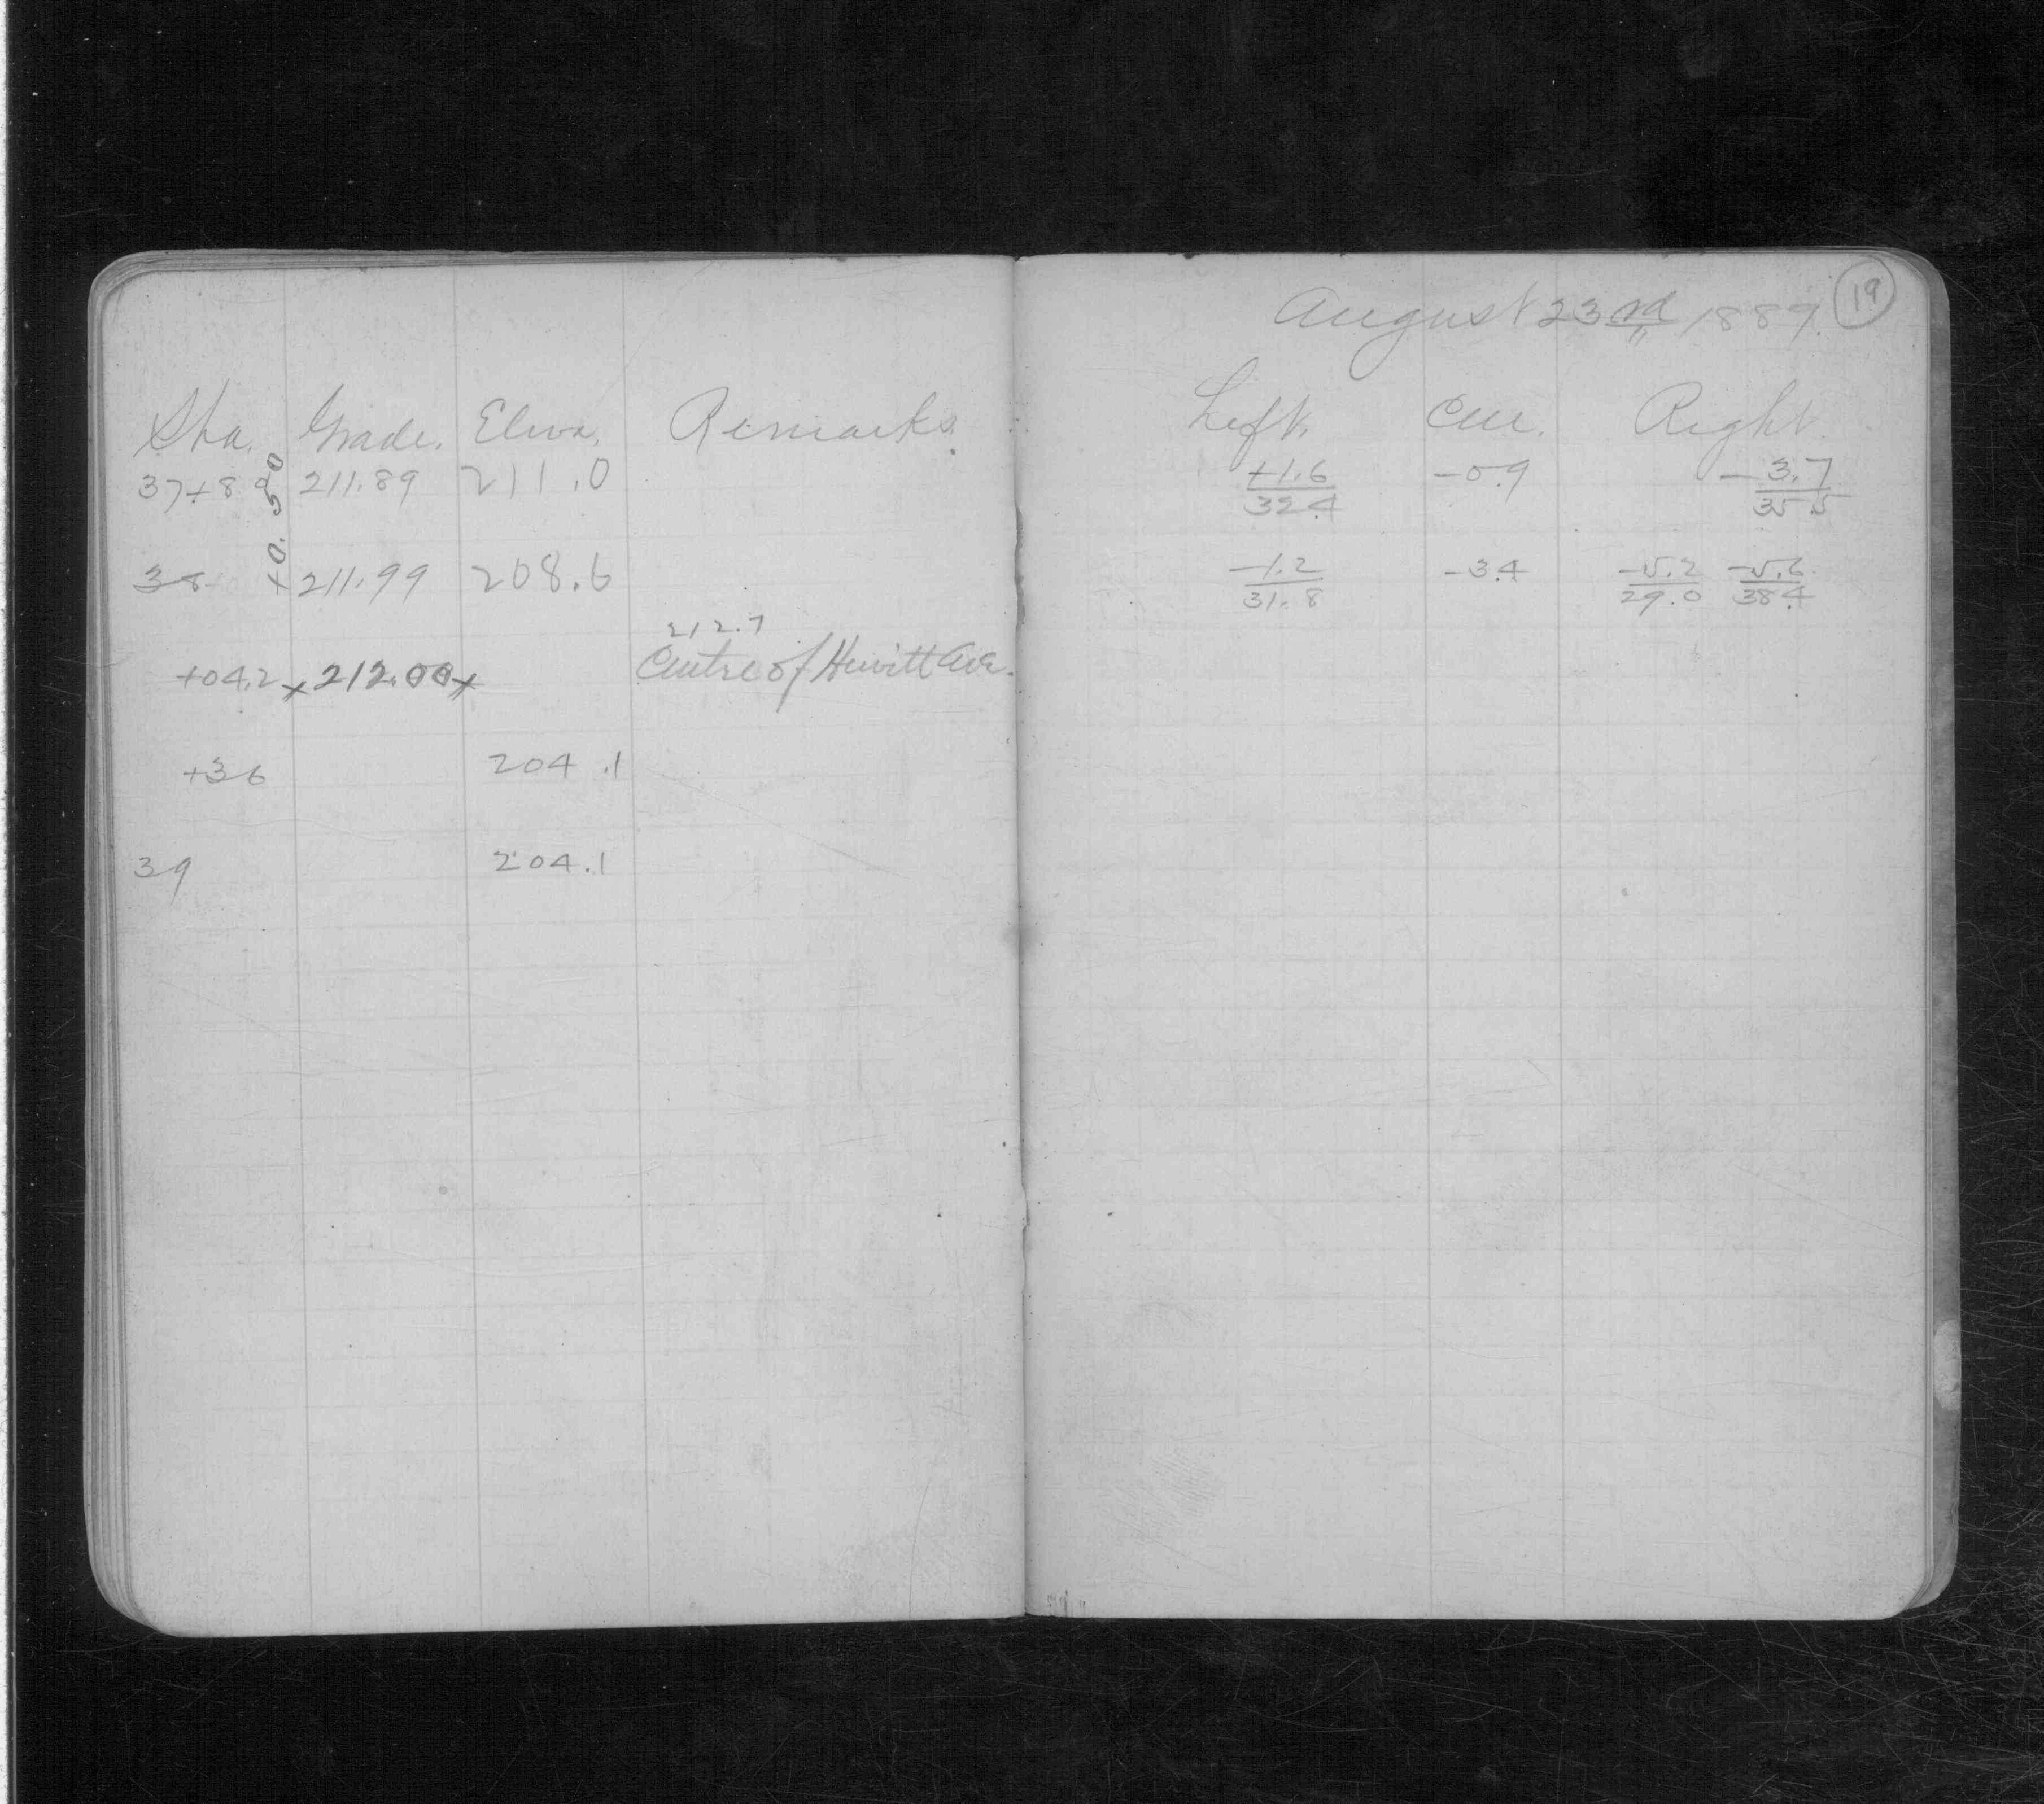 August 23rd 1889. 19
Sta. Grade. Eliva. Remarks.
37+8 211.89 211.0
+0.500
38 211.99 208.6
212.7
+04.2 x 212.00 x Centre of Hewitt Ave.
+36 204.1
39 204.1
Left. Cen. Right
+1.6 -0.9 -3.7
32.4 35.5
-1.2 -3.4 -5.2 -5.6
31.8 29.0 38.4